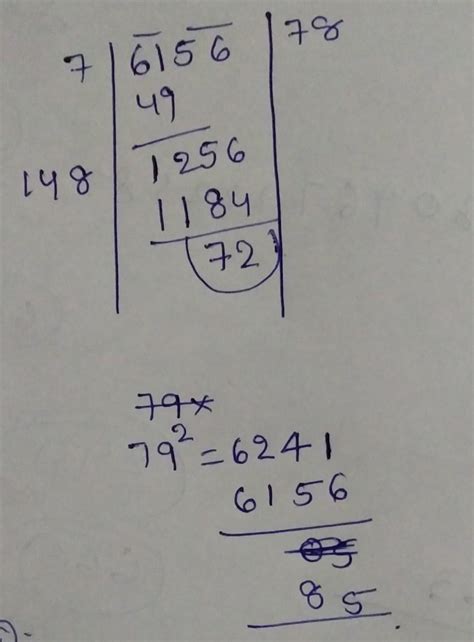 7 6156 78
49
1256
148
1184
72
79×
79² = 6241
6156
05
85